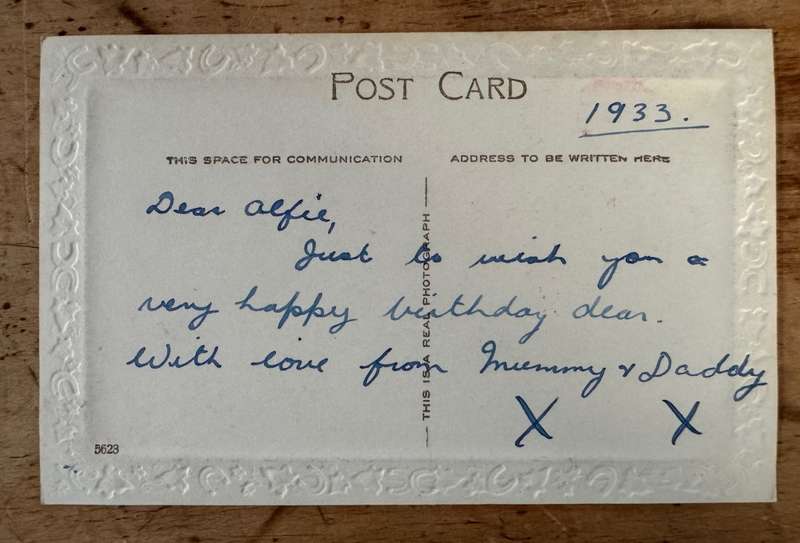 POST CARD
1933.
THIS SPACE FOR COMMUNICATION
ADDRESS TO BE WRITTEN HERE
Dear Alfie,
Just to wish you a
very happy birthday dear.
With love from Mummy & Daddy
X X
THIS IS A REAL PHOTOGRAPH
5623